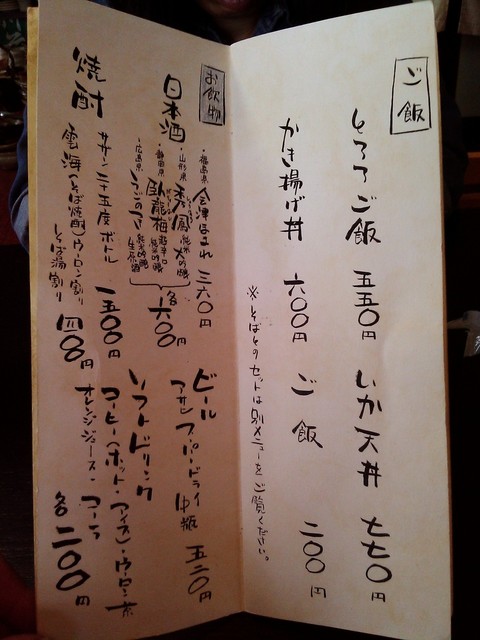 ご飯
とろろご飯 五五〇円
いか天丼 七七〇円
かき揚げ丼 六〇〇円
ご飯 二〇〇円
※そばとのセットは別メニューをご覧ください。
お飲物
日本酒
・福島県 会津ほまれ 三六〇円
・山形県 秀鳳 純米大吟醸
・静岡県 臥龍梅 超辛口 純米吟醸
・広島県 いつこのつる 純米吟醸 生原酒
各六〇〇円
ビール
アサヒスーパードライ 中瓶 五二〇円
ソフトドリンク
コーヒー（ホット・アイス）・ウーロン茶
オレンジジュース・コーラ
各二〇〇円
焼酎
サーサン二十五度 ボトル 一五〇〇円
雲海（そば焼酎）ウーロン割り
そば湯割り
四〇〇円